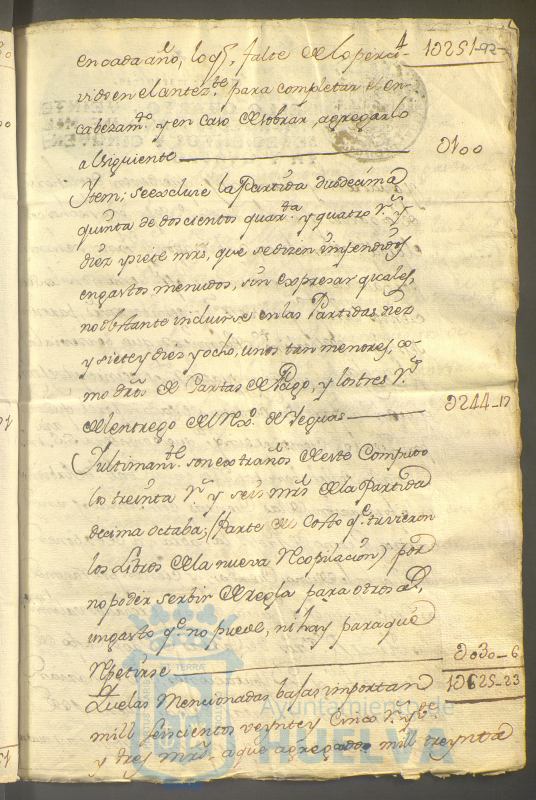 en cada año, lo qe. falte de lo perci- 1 U 251-92-
vido en el antezte. para completar el en-
cabezamto. y en caso de sobrar, agregarlo
al siguiente U100
Ytem; se excluie la Partida duodecima
quinta de doscientos quarta. y quatro rs. y
diez y siete mrs, que se dizen impendidos
en gastos menudos, sin expresar quales,
no obstante incluirse en las Partidas diez
y siete y diez y ocho, unos tan menores, co-
mo dros de Cartas de Pago, y los tres rs.
del entrego del Rexo. de Yeguas U244-17
Y ultimamte. son extraños de este Computo
los treinta rs. y seis mrs de la Partida
decima octaba; (Parte del costo qe. tuvieron
los Libros de la nueva Recopilacion) por
no poder serbir de regla para otros as.
un gasto qe. no puede, ni hay para que
Repetirse U030-6
Que las Mencionadas bajas importan 1 U 625-23
mill seiscientos veynte y Cinco rs. y vte.
y tres mrs. a que agregados mill treynta
Ayuntamiento de
HUELVA